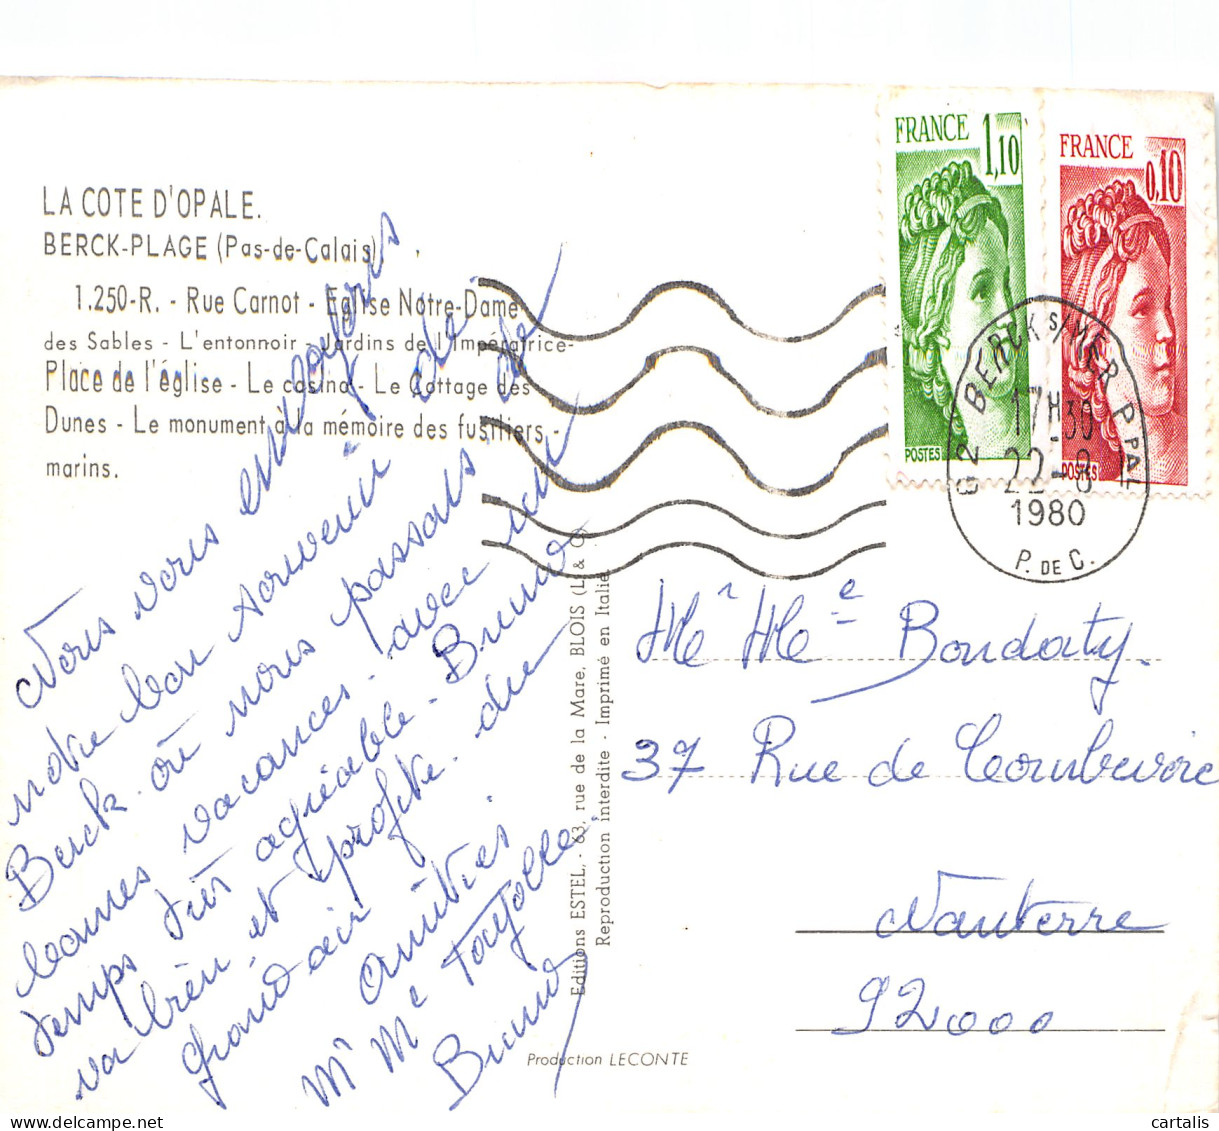 LA COTE D'OPALE.
BERCK-PLAGE (Pas-de-Calais)
1.250-R. - Rue Carnot - Eglise Notre-Dame
des Sables - L'entonnoir - Jardins de l'Impératrice-
Place de l'église - Le casino - Le Cottage des
Dunes - Le monument à la mémoire des fusilliers-
marins.
FRANCE 1,10
POSTES
FRANCE 0,10
POSTES
62 BERCK S/MER PPAL
17H30
22-8
1980
P. DE C.
Nous vous envoyons
notre bon souvenir de
Berck. où nous passons de
bonnes vacances. avec un
temps très agréable - Bruno
va bien. et profite du
grand air
Amitiés.
Mr Me Fayolle.
Bruno
Editions ESTEL, - 63, rue de la Mare, BLOIS (L. & C.)
Reproduction interdite - Imprimé en Italie.
Production LECONTE
Mr Me Bondaty.
37 Rue de Courbevoie
Nanterre
92000
cartalis